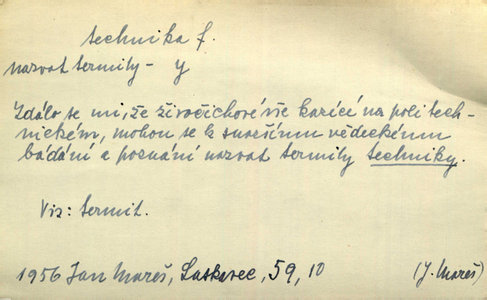 technika f.
nazvat termity - y
Zdálo se mi, že živočichové vše kazící na poli tech-
nickém, mohou se k
vědeckému
bádání a poznání nazvat termity techniky.
Viz: termit.
1956 Jan Mareš, 59, 10 (J. Mareš)